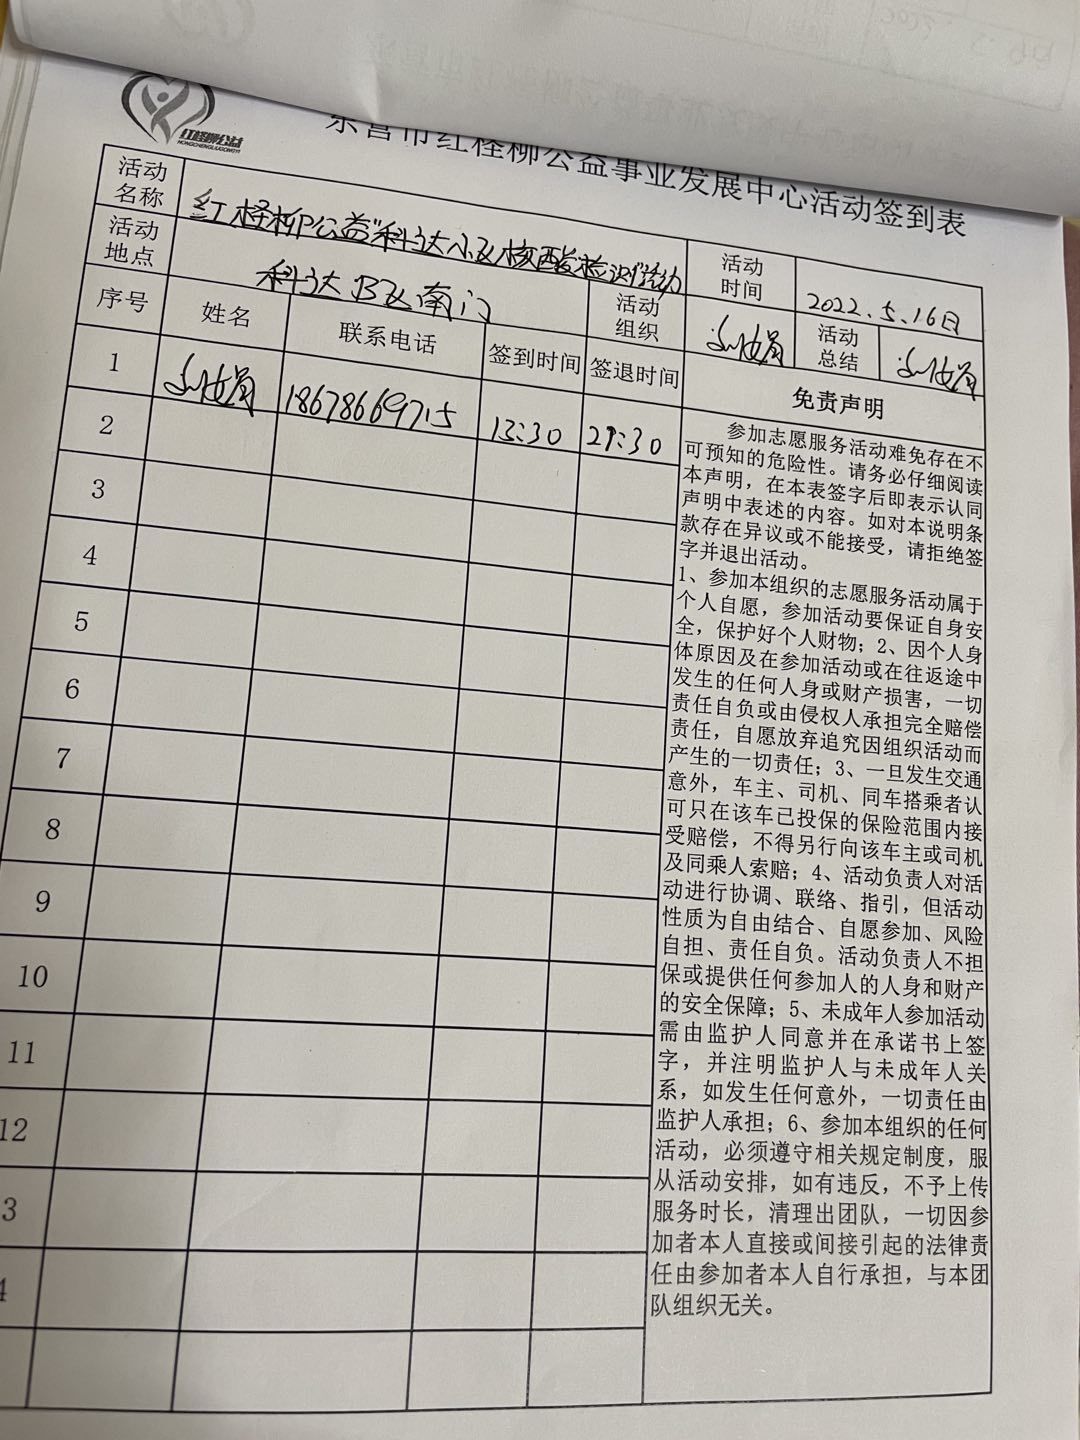 红柽柳公益
HONGCHENGLIUGONGYI
东营市红柽柳公益事业发展中心活动签到表
活动名称 红柽柳公益"科达小区核酸检测"活动 活动时间 2022.5.16日
活动地点 科达B区南门 活动组织 活动总结
序号 姓名 联系电话 签到时间 签退时间 免责声明
1 18678669715 13:30 21:30
2
3
4
5
6
7
8
9
10
11
12
3
4
参加志愿服务活动难免存在不
可预知的危险性。请务必仔细阅读
本声明，在本表签字后即表示认同
声明中表述的内容。如对本说明条
款存在异议或不能接受，请拒绝签
字并退出活动。
1、参加本组织的志愿服务活动属于
个人自愿，参加活动要保证自身安
全，保护好个人财物；2、因个人身
体原因及在参加活动或在往返途中
发生的任何人身或财产损害，一切
责任自负或由侵权人承担完全赔偿
责任，自愿放弃追究因组织活动而
产生的一切责任；3、一旦发生交通
意外，车主、司机、同车搭乘者认
可只在该车已投保的保险范围内接
受赔偿，不得另行向该车主或司机
及同乘人索赔；4、活动负责人对活
动进行协调、联络、指引，但活动
性质为自由结合、自愿参加、风险
自担、责任自负。活动负责人不担
保或提供任何参加人的人身和财产
的安全保障；5、未成年人参加活动
需由监护人同意并在承诺书上签
字，并注明监护人与未成年人关
系，如发生任何意外，一切责任由
监护人承担；6、参加本组织的任何
活动，必须遵守相关规定制度，服
从活动安排，如有违反，不予上传
服务时长，清理出团队，一切因参
加者本人直接或间接引起的法律责
任由参加者本人自行承担，与本团
队组织无关。